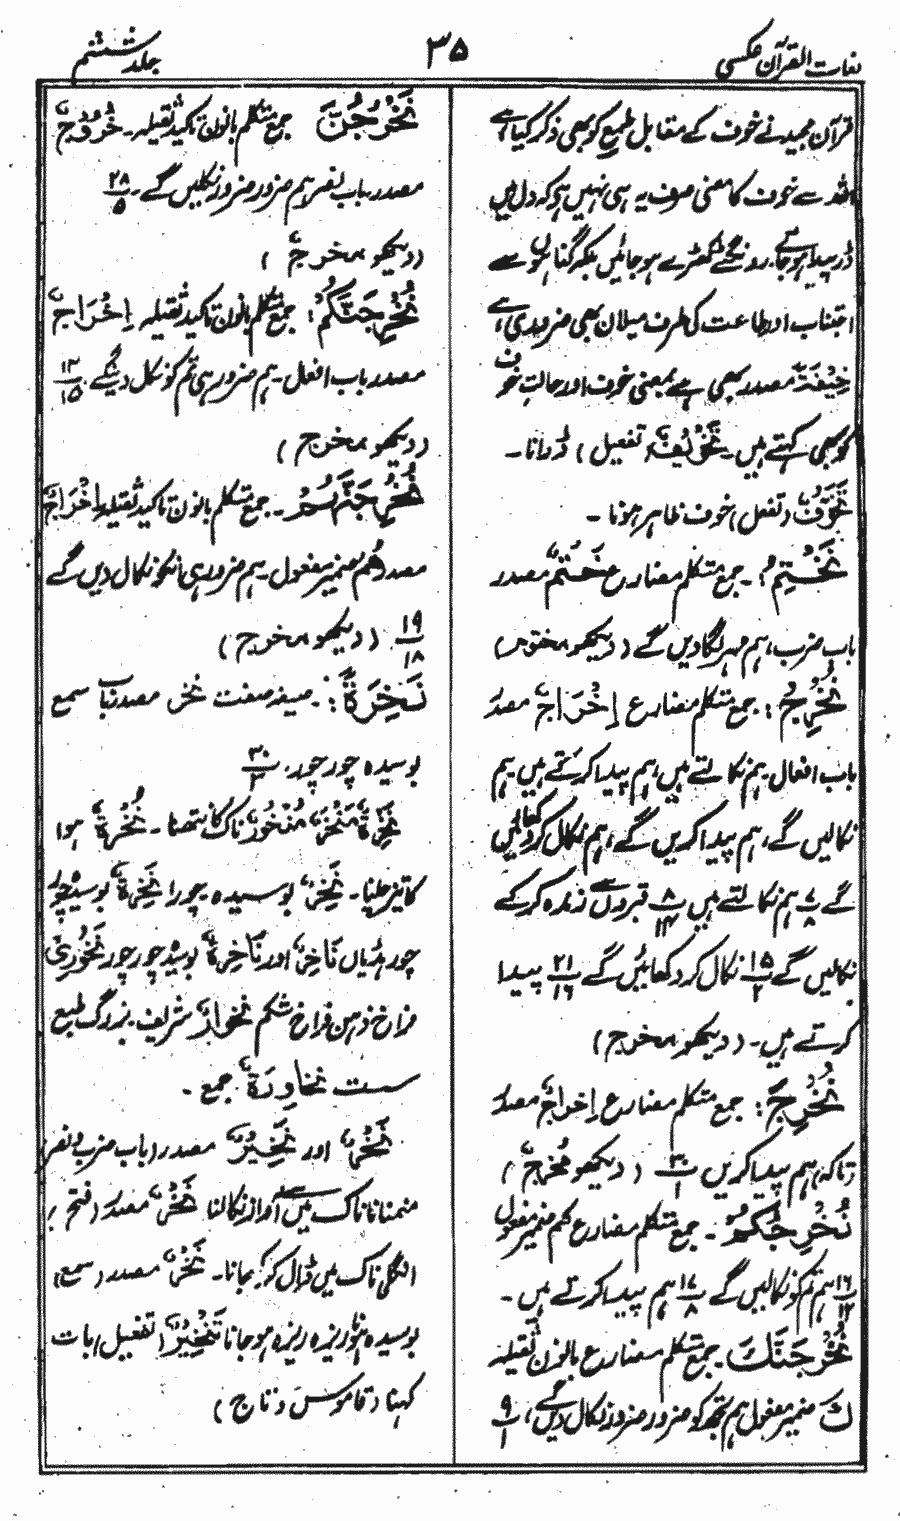 لغات القرآن عکسی
۳۵
جلد ششم
قرآن مجید نے خوف کے مقابل طمع کو بھی ذکر کیا ہے،
اللہ سے خوف کا معنی صرف یہ ہی نہیں ہے کہ دل میں
ڈر پیدا ہو جائے۔ رونگٹے کھڑے ہو جائیں بلکہ گناہوں سے
اجتناب اور طاعت کی طرف میلان بھی ضروری ہے،
خِیْفَةً مصدر بھی ہے بمعنی خوف اور حالتِ خوف
کو بھی کہتے ہیں۔ تَخْوِیْفٌ (تفعیل) ڈرانا۔
تَخَوُّفٌ (تفعل) خوف ظاہر ہونا۔
نَخْتِمُ ۔ جمع متکلم مضارع خَتْمٌ مصدر
باب ضرب، ہم مہر لگا دیں گے (دیکھو مختوم)
نُخْرِجُ : جمع متکلم مضارع اِخْرَاجٌ مصدر
باب افعال۔ ہم نکالتے ہیں، ہم پیدا کرتے ہیں ہم
نکالیں گے، ہم پیدا کریں گے، ہم نکال کر دکھائیں
گے ۷/۸ ہم نکالتے ہیں ۸/۱۴ قبروں سے زندہ کر کے
نکالیں گے ۱۵/۲ نکال کر دکھائیں گے ۲۱/۱۶ پیدا
کرتے ہیں۔ (دیکھو مخرج)
نُخْرِجَ : جمع متکلم مضارع اِخراجٌ مصدر
(تاکہ) ہم پیدا کریں ۳۰/۱ (دیکھو مُخْرِجٌ)
نُخْرِجُكُمْ ۔ جمع متکلم مضارع کم ضمیر مفعول
۱۶/۱۲ ہم تم کو نکالیں گے ۱۷/۸ ہم پیدا کرتے ہیں۔
نُخْرِجَنَّكَ ۔ جمع متکلم مضارع بانون ثقیلہ
كَ ضمیر مفعول ہم تجھ کو ضرور ضرور نکال دیں گے، ۹/۱
نَخْرُجَنَّ جمع متکلم بانون تاکید ثقیلہ۔ خُرُوْجٌ
مصدر باب نصر ہم ضرور ضرور نکلیں گے۔ ۲۸/۵
(دیکھو مخرج)
نُخْرِجَنَّكُمْ : جمع متکلم بانون تاکید ثقیلہ اِخْرَاجٌ
مصدر باب افعال۔ ہم ضرور ہی تم کو نکال دیں گے ۱۳/۱۵
(دیکھو مخرج)
نُخْرِجَنَّهُمْ ۔ جمع متکلم بانون تاکید ثقیلہ اِخْرَاجٌ
مصدر هُم ضمیر مفعول۔ ہم ضرور ہی انکو نکال دیں گے
۱۹/۱۸ (دیکھو مخرج)
نَخِرَةً : صیغہ صفت نخر مصدر باب سمع
بوسیدہ چورچور۔ ۳۰/۳
نَخِرَةٌ مَنْخَرٌ مُنْخُورٌ ناک کا نتھنا۔ نُخْرَةٌ ہوا
کا تیز چلنا۔ نَخِرٌ بوسیدہ چورا نَخِرَةٌ بوسیدہ چورا
چور ہڈیاں نَاخِرٌ اور نَاخِرَةٌ بوسیدہ چورچور نَخْوَرِیٌّ
فراخ ذہن فراخ شکم نخوارٌ شریف۔ بزرگ طبع
ست نخاوِرَةٌ جمع۔
نَخْرٌ اور نَخِیْرٌ مصدر (باب ضرب و نصر)
منمنانا ناک میں سے آواز نکالنا نَخْرٌ مصدر (فتح)
انگلی ناک میں ڈال کر بجانا۔ نَخَرٌ مصدر (سمع)
بوسیدہ ہونا ریزہ ریزہ ہو جانا تَنْخِیْرٌ (تفعیل) بات
کہنا (قاموس و تاج)